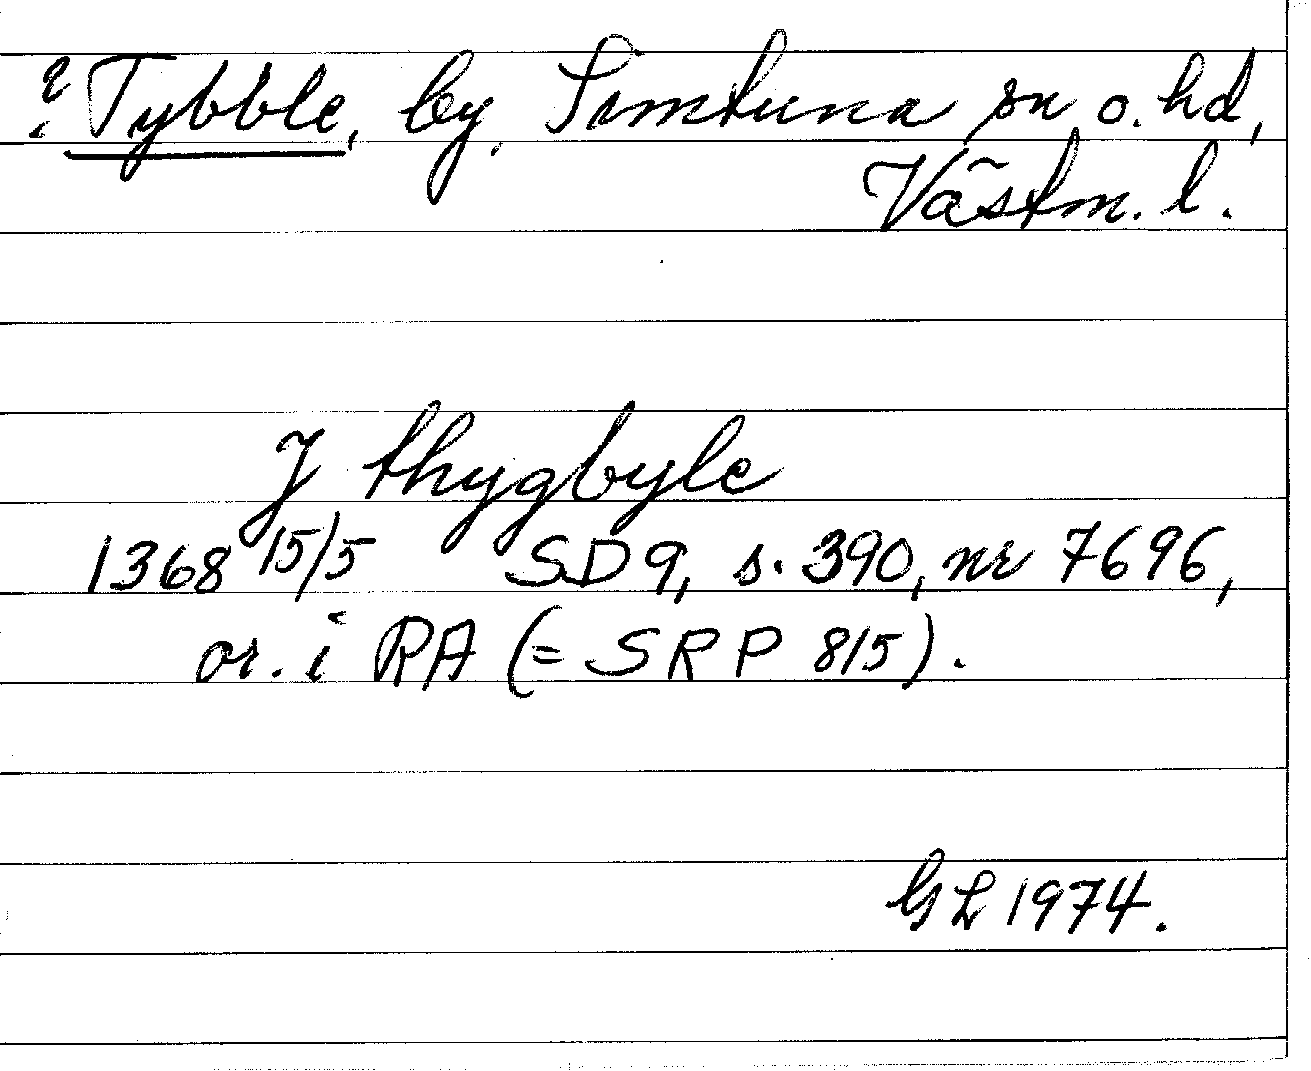 ? Tybble, by, Simtuna sn o. hd,
Västm. l.
J thygbyle
1368 15/5 SD 9, s. 390, nr 7696,
or. i RA (= SRP 815).
GL 1974.